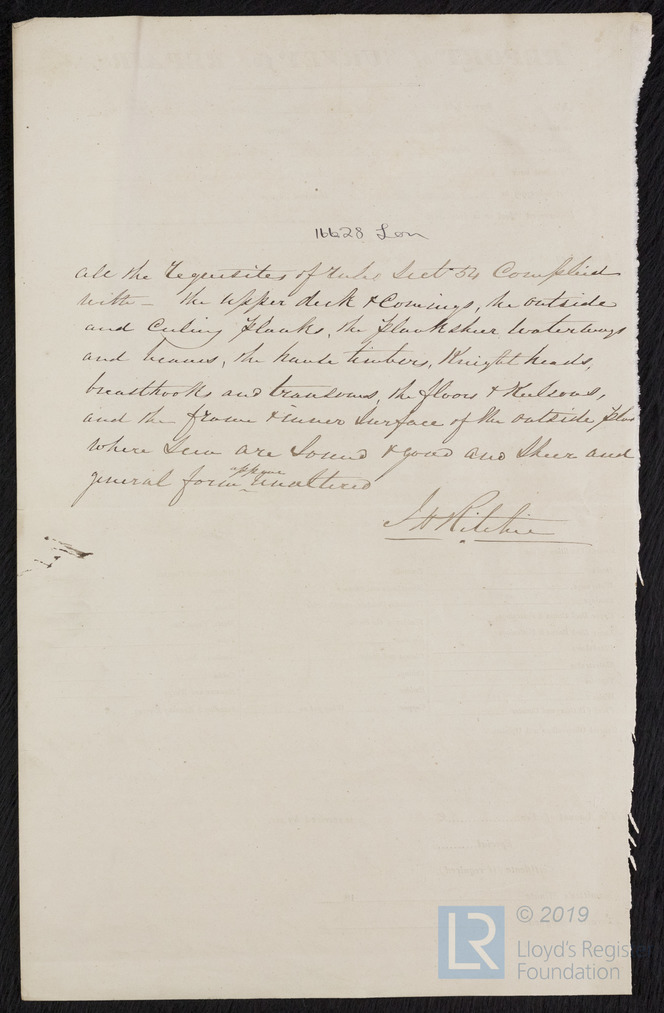 16628 Lon
all the Requisites of rule Sect 54 Complied
with – the upper deck & Comings, the outside
and Ceiling planks, the planksheer waterways
and beams, the hause timbers, Knight heads,
breasthooks and transoms, the floors & Keelsons,
and the frame & inner Surface of the outside plan
where seen are Sound & good and Sheer and
appear
general form unaltered
J H Ritchie
LR
© 2019
Lloyd's Regist
Foundation